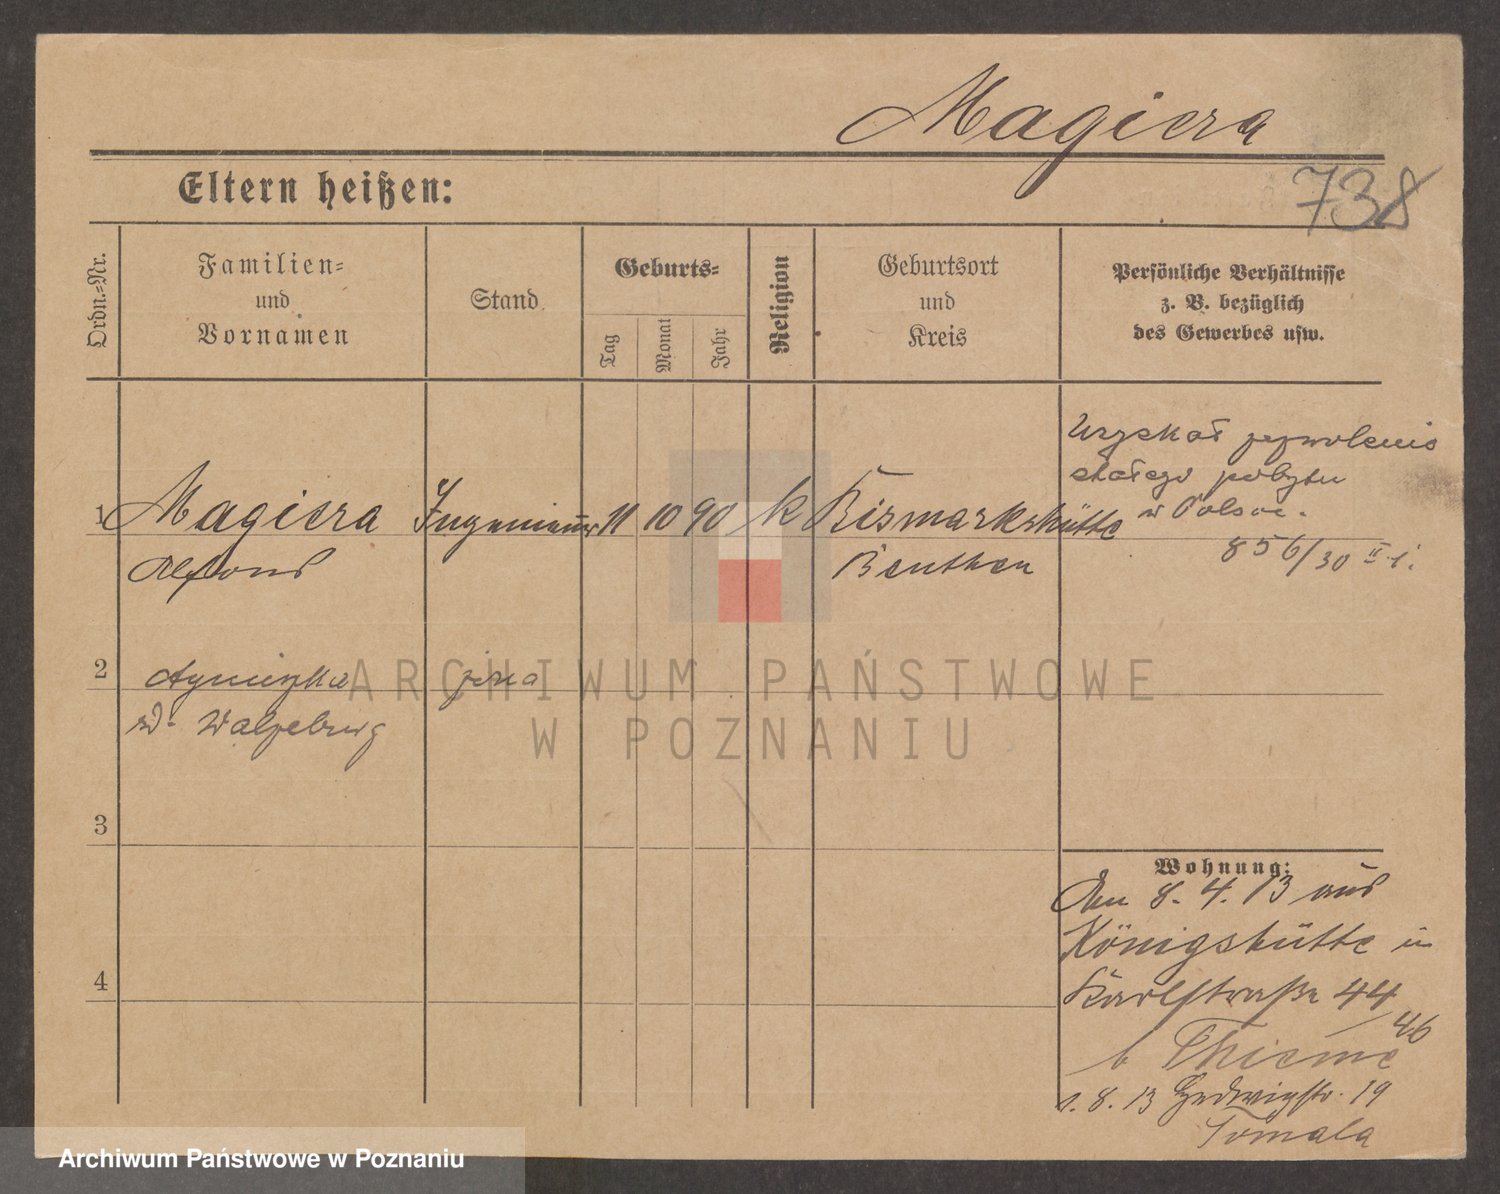 Magiera
Eltern heißen:
738
Ordn.-Nr.
Familien-
und
Vornamen
Stand
Geburts-
Tag
Monat
Jahr
Religion
Geburtsort
und
Kreis
Persönliche Verhältnisse
z. B. bezüglich
des Gewerbes usw.
Uzyskał zezwolenie
stałego pobytu
w Polsce.
856/30 II
1 Magiera Ingenieur 11 10 90 k Bismarkshütte
Alfons Beuthen
2 Agnieszka żona
Walzebug
3
4
Wohnung:
Am 8. 4. 13 aus
Königshütte in
Karlstraße 44
/46
b Thieme
1. 8. 13 Hedwigstr. 19
Tomala
ARCHIWUM PAŃSTWOWE
W POZNANIU
Archiwum Państwowe w Poznaniu